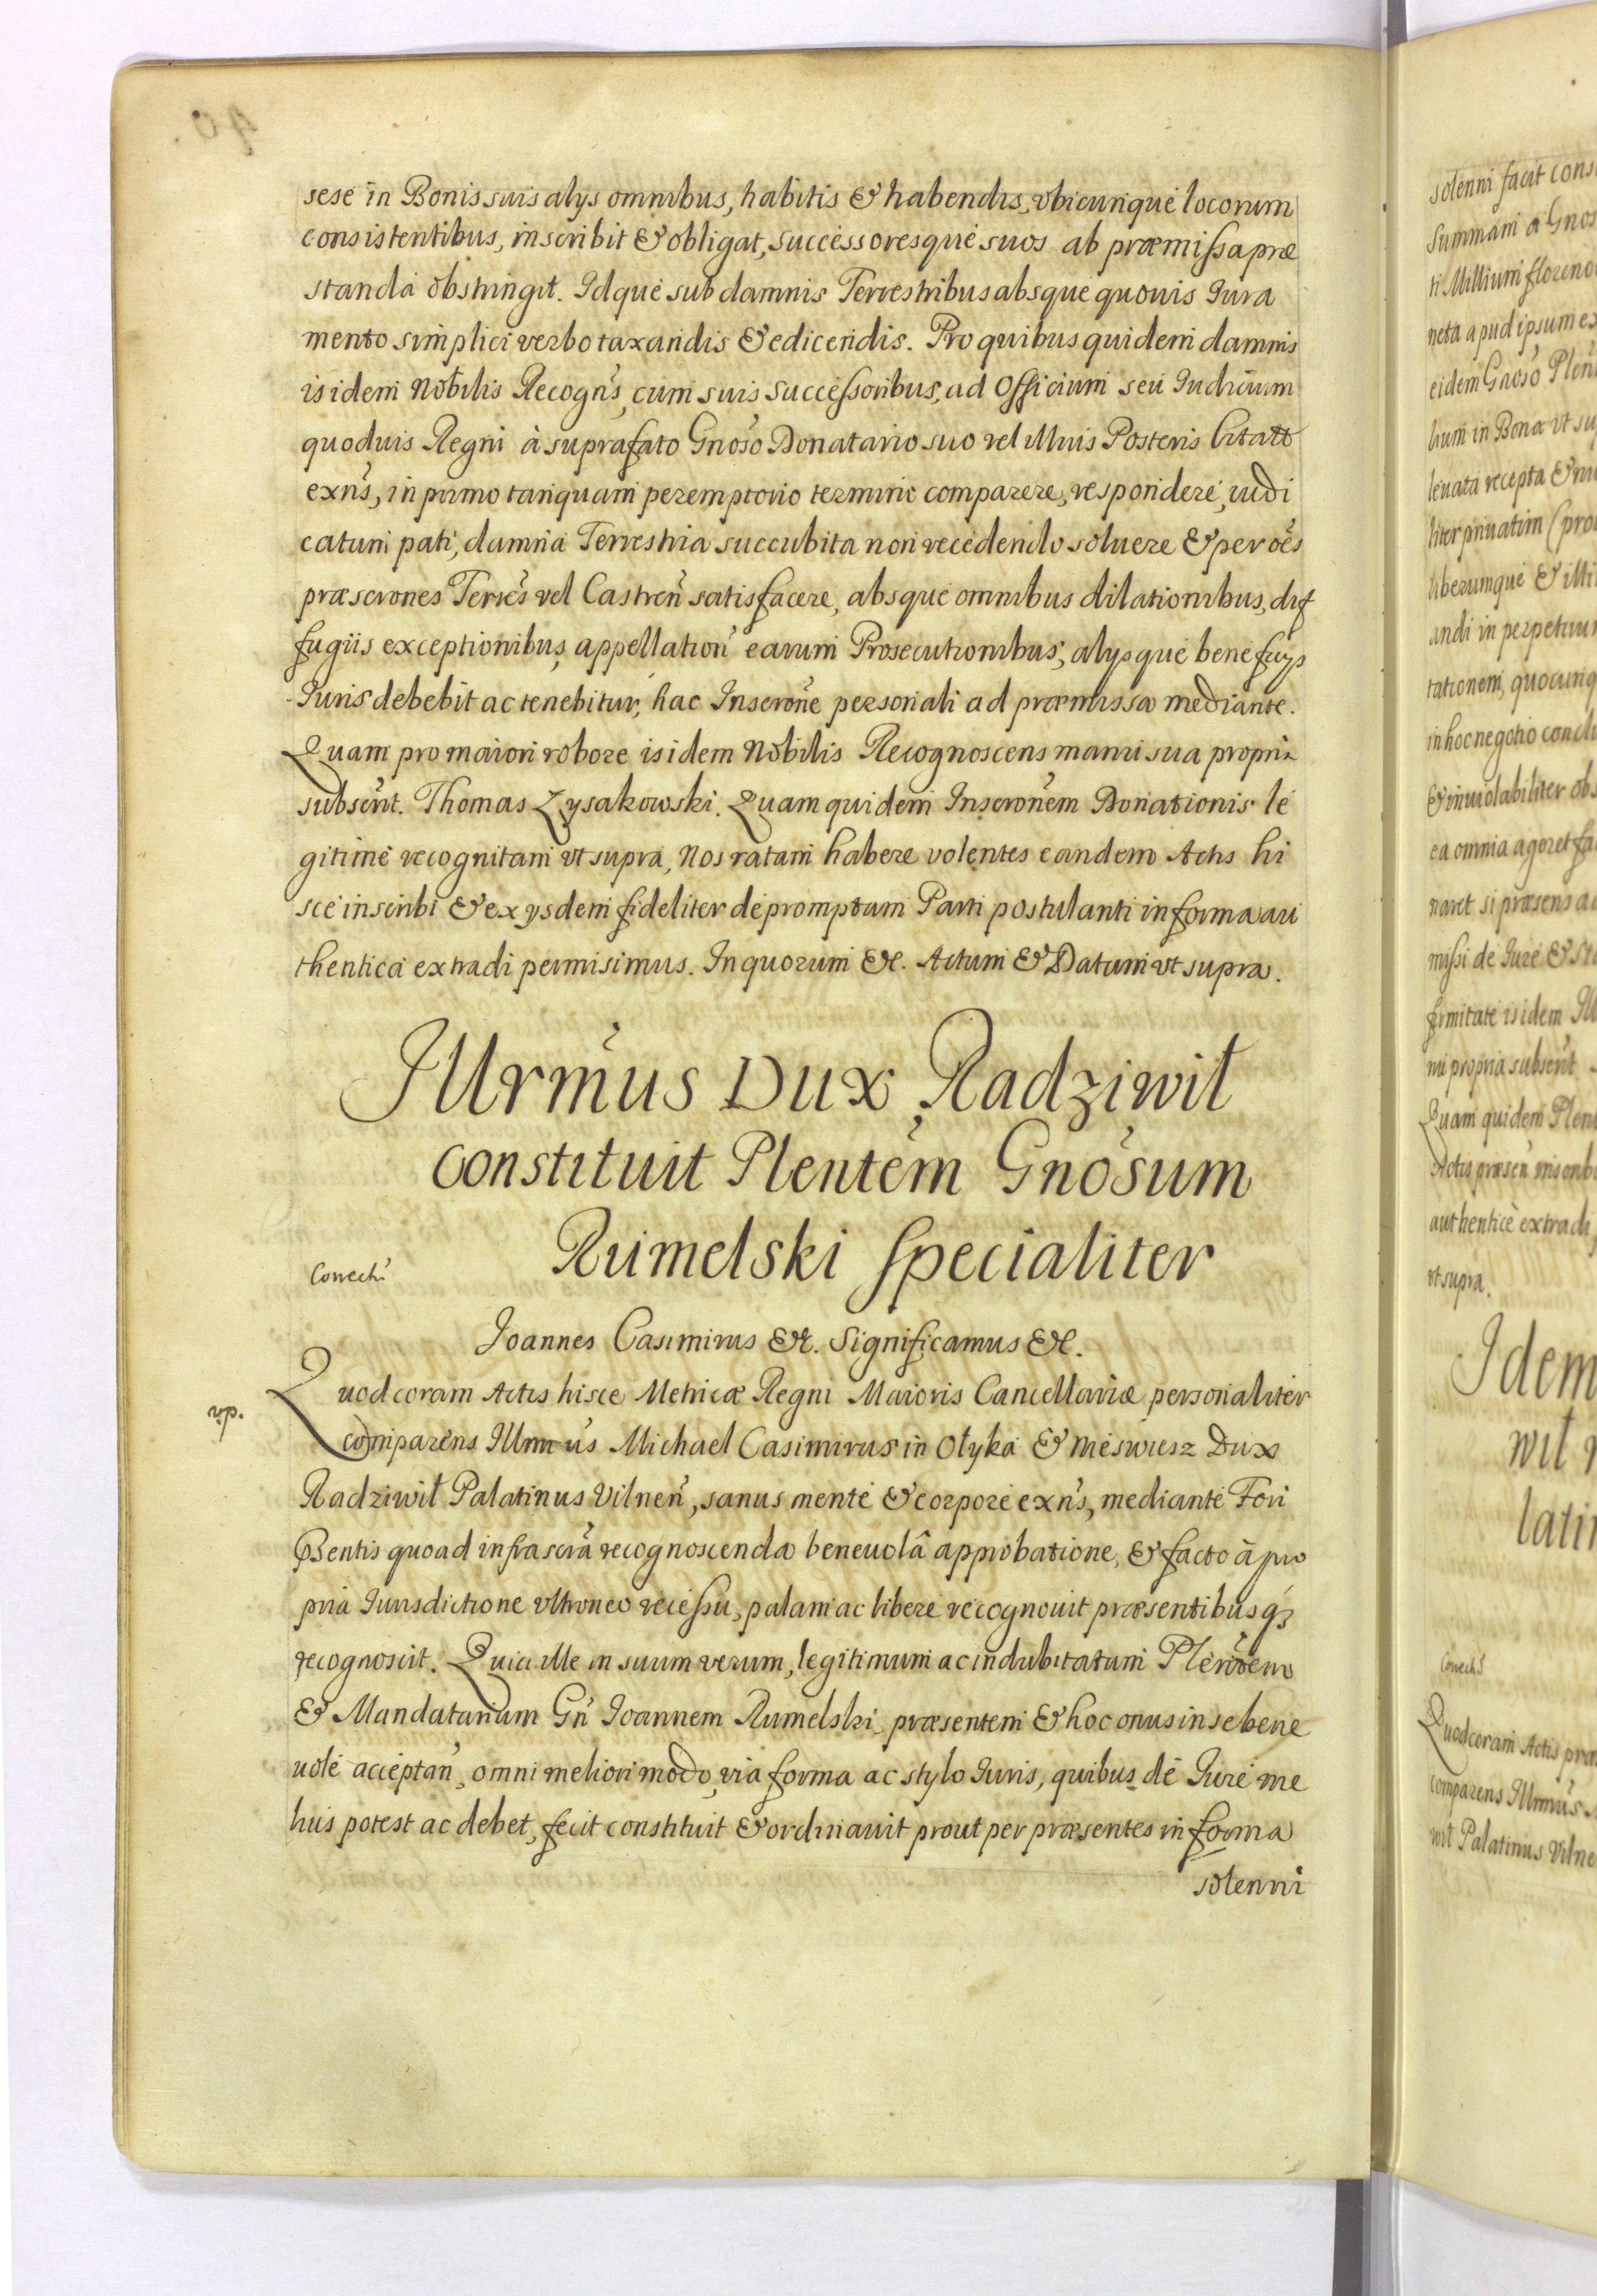 sese in Bonis suis alys omnibus, habitis & habendis, vbicunque locorum
consistentibus, inscribit & obligat, successoresque suos ab præmissa præ
standa obstringit. Idque sub damnis Terrestribus absque quouis Iura
mento simplici verbo taxandis & edicendis. Pro quibus quidem damnis
isidem Nobilis Recogn̄s, cum suis Successoribus, ad Officium seu Iudicium
quoduis Regni à suprafato Gnoso Donatario suo vel illius Posteris Citatt
exn̄s, in primo tanquam peremptorio termino comparere, respondere, iudi
catum pati, damna Terrestria succubita non recedendo soluere & per oēs
præscrones Terrēs vel Castren̄ satisfacere, absque omnibus dilationibus, dif
fugiis exceptionibus, appellation̄ earum Prosecutionibus, alysque beneficys
Iuris debebit ac tenebitur, hac Inscrone personali ad præmissa mediante.
Quam pro maiori robore isidem Nobilis Recognoscens manu sua propria
subscrit. Thomas Lysakowski. Quam quidem Inscronem Donationis le
gitime recognitam vt supra, Nos ratam habere volentes eandem Actis hi
sce inscribi & ex ysdem fideliter depromptum Parti postulanti in forma au
thentica extradi permisimus. In quorum &c. Actum & Datum vt supra.
Illrm̄us Dux Radziwił
constituit Plentem Gnosum
Rumelski specialiter
Correct̄
Ioannes Casimirus &c. Significamus &c.
Quod coram Actis hisce Metricæ Regni Maioris Cancellariæ personaliter
rp.
comparens Illmus Michael Casimirus in Olyka & Meswiesz Dux
Radziwił Palatinus Vilnen̄, sanus mente & corpore exn̄s, mediante Fori
Psentis quoad infrascrā recognoscenda beneuolâ approbatione, & facto à pro
pria Iurisdictione vltroneo recessu, palam ac libere recognouit præsentibusq3
recognoscit. Quia ille in suum verum, legitimum ac indubitatum Plentem
& Mandatarium Gn̄ Ioannem Rumelski præsentem & hoc onus in se bene
uole acceptan̄, omni meliori modo, via forma ac stylo Iuris, quibus de Iure me
lius potest ac debet, fecit constituit & ordinauit prout per præsentes in forma
solenni
solenni facit cons
Summam a Gnos
ti Millium floreno
neta apud ipsum ex
eidem Gnoso Plen
lium in Bona vt su
leuata recepta & nu
liter priuatim (pro
liberumque & illi
andi in perpetuu
tationem, quocunq
in hoc negotio conclu
& inuiolabiliter obs
ea omnia ageret fa
naret si præsens ad
missi de Iure & Sta
firmitate isidem Ill
nu propria subscrit
Quam quidem Plen
Actis præsen̄
authentice extradi
vt supra.
Idem
wił
lati
Correct̄
Quod coram Actis præ
comparens Illmus
wił Palatinus Vilne